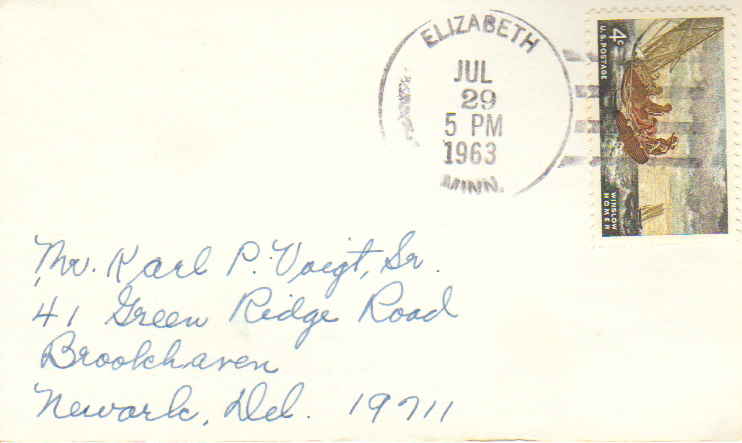 ELIZABETH
JUL
29
5 PM
1963
MINN.
4c
U.S. POSTAGE
WINSLOW
HOMER
Mr. Karl P. Voigt, Sr.
41 Green Ridge Road
Brookhaven
Newark, Del. 19711